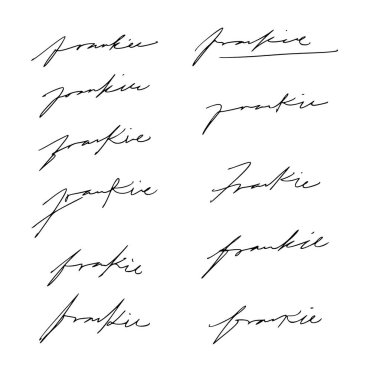 frankie
frankie
frankie
frankie
frankie
frankie
frankie
frankie
Frankie
frankie
frankie